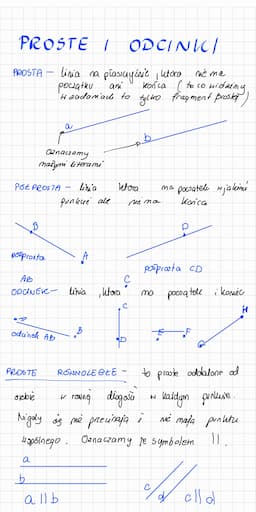 PROSTE I ODCINKI
PROSTA – linia na płaszczyźnie, która nie ma
początku ani końca (to co widzimy
w zadaniach to tylko fragment prostej)
a
b
Oznaczamy
małymi literami
PÓŁPROSTA – linia która ma początek w jakimś
punkcie ale nie ma końca
B
A
D
półprosta
AB
półprosta CD
C
ODCINEK – linia, która ma początek i koniec
A
B
odcinek AB
C
D
E
F
H
G
PROSTE RÓWNOLEGŁE – to proste oddalone od
siebie w równej długości w każdym punkcie.
Nigdy się nie przecinają i nie mają punktu
wspólnego. Oznaczamy je symbolem ||.
a
b
a || b
c
d
c || d